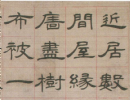 近居數
間屋緣
廧盡樹
布被一